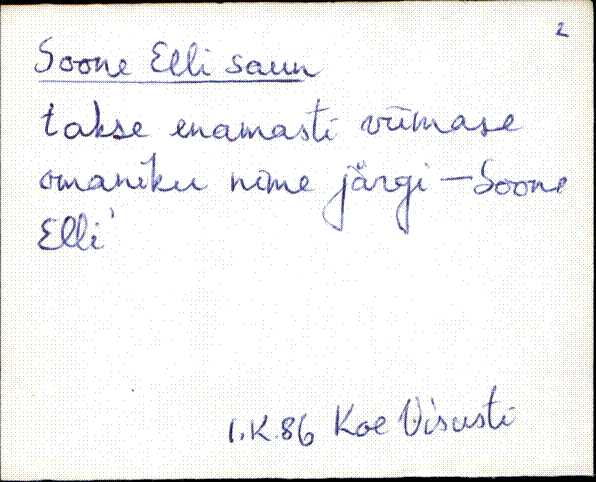 2
Soone Elli saun
takse enamasti viimase
omaniku nime järgi – Soone
Elli'
1.K.86 Koe Visusti